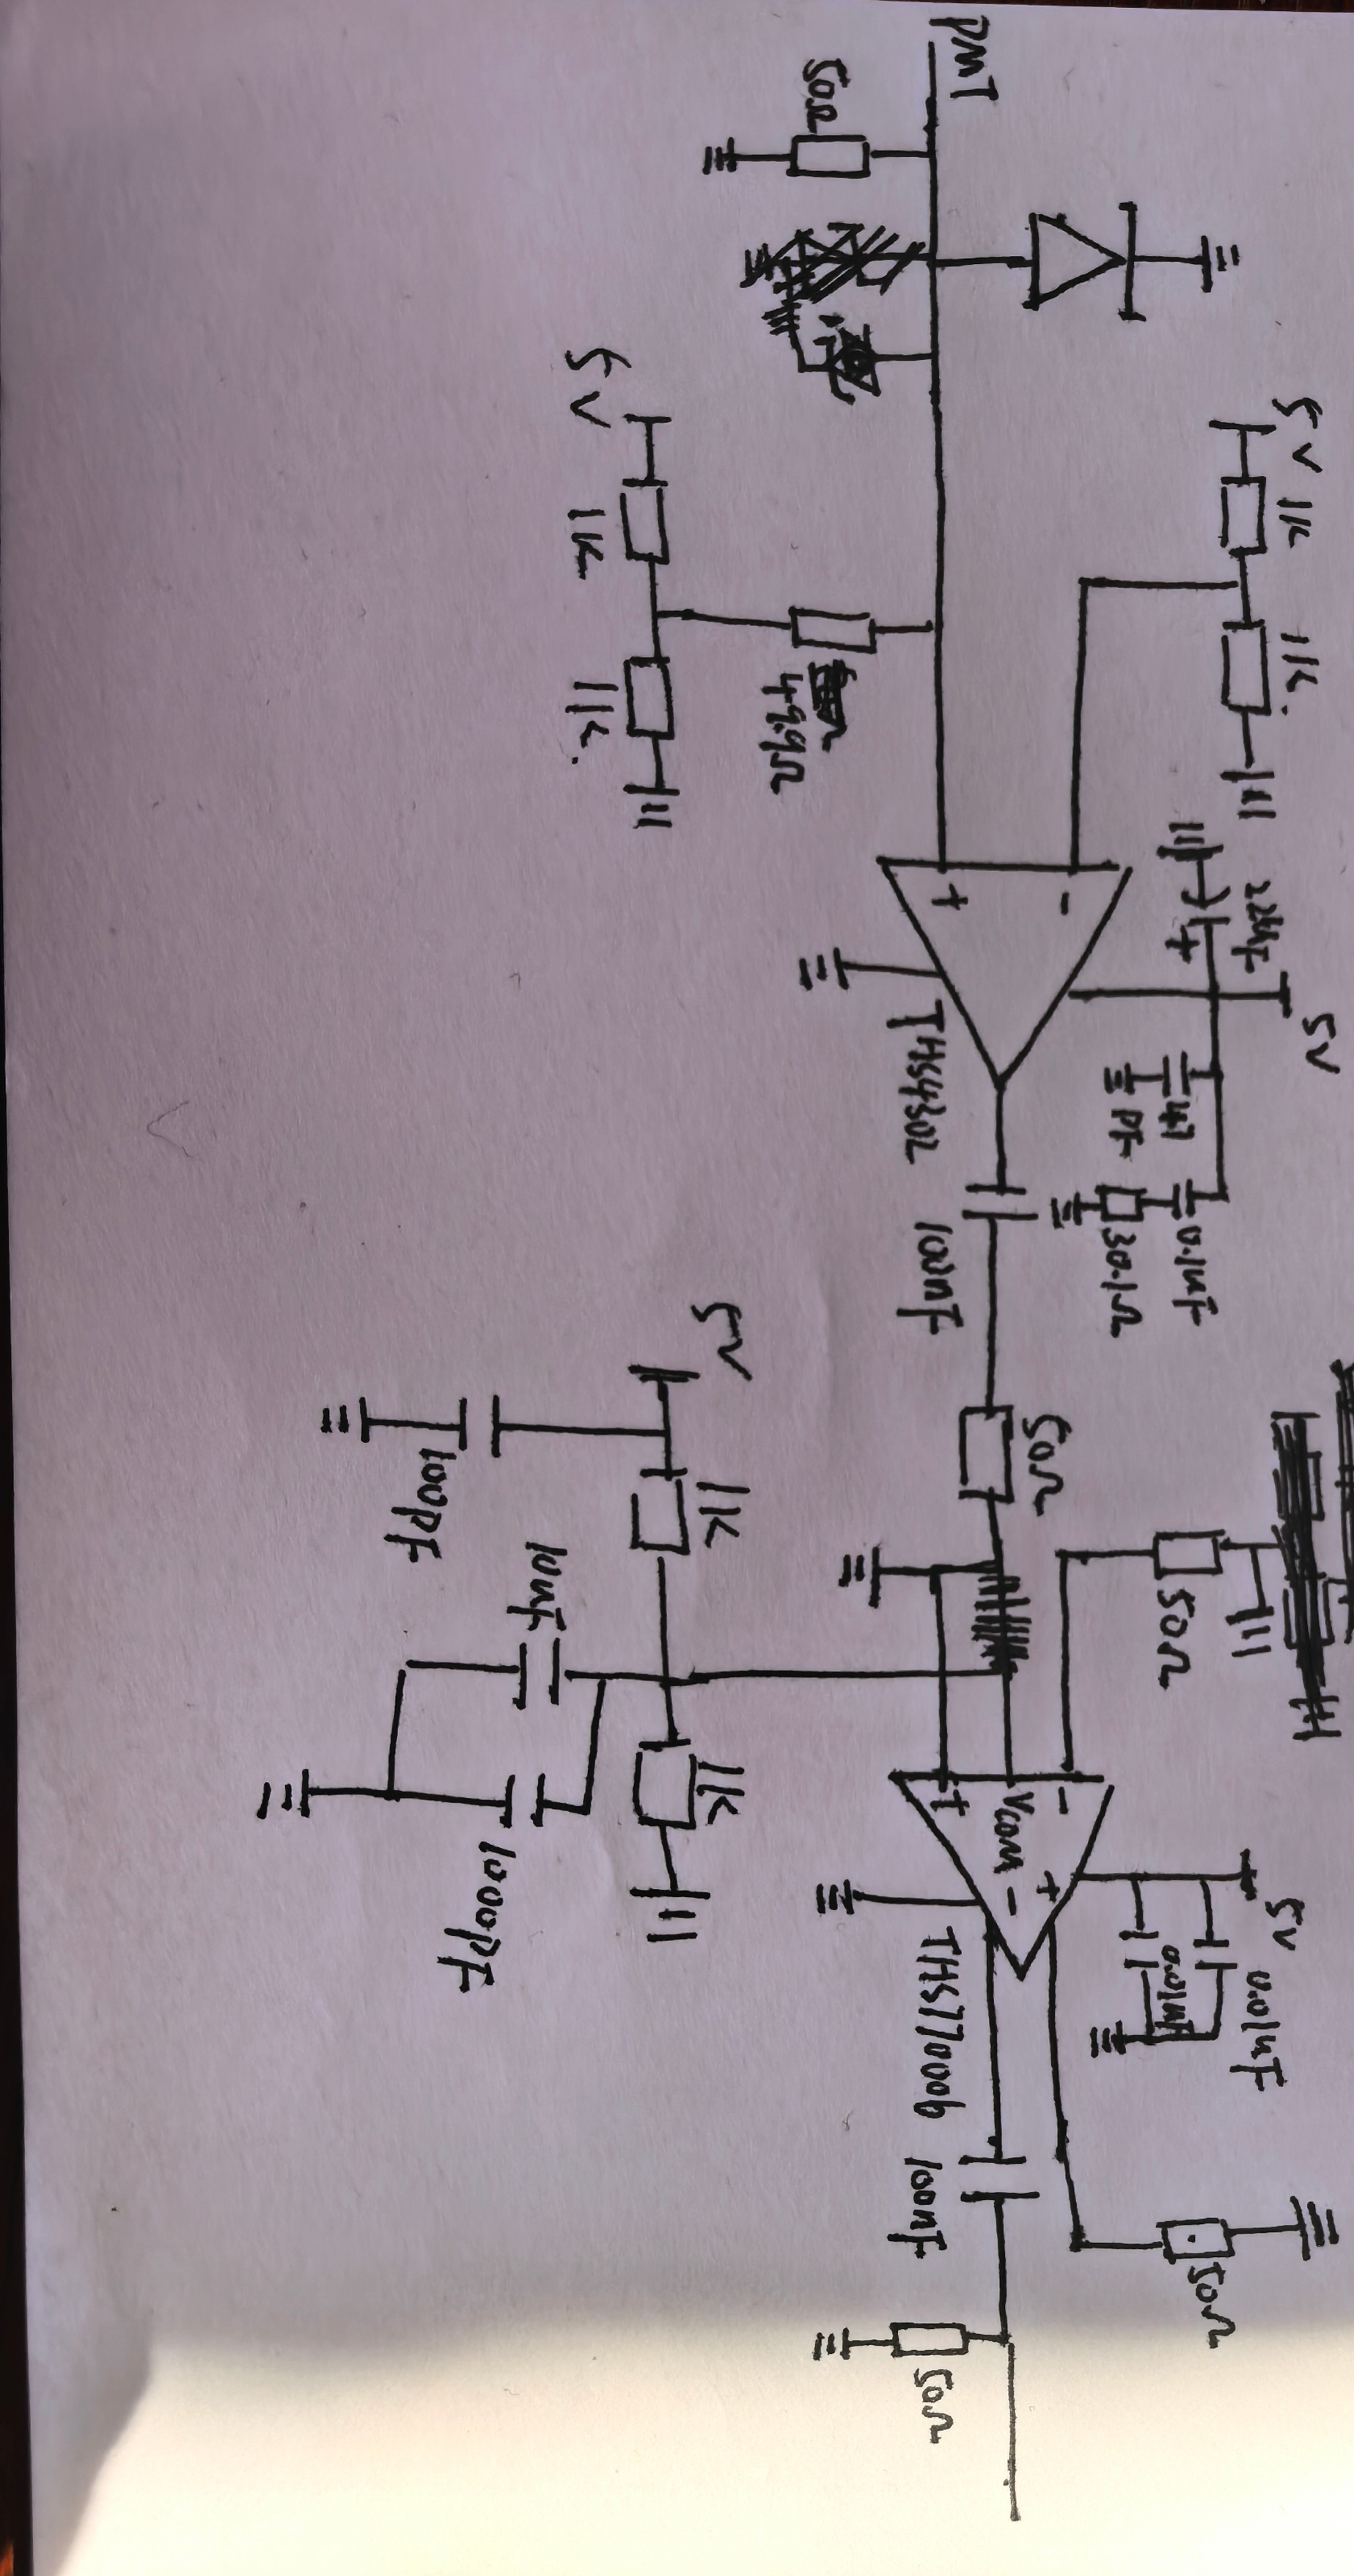 PMT
50Ω
5V
1K
1K.
5V
1K
1K.
49.9Ω
+
-
THS4302
22μF
+
5V
47
PF
0.1uF
30.1Ω
100nF
50Ω
50Ω
5V
1K
1K
100pF
10uF
1000pF
+
Vcom
-
+
-
THS770006
5V
0.01uF
0.01uF
100nF
50Ω
50Ω